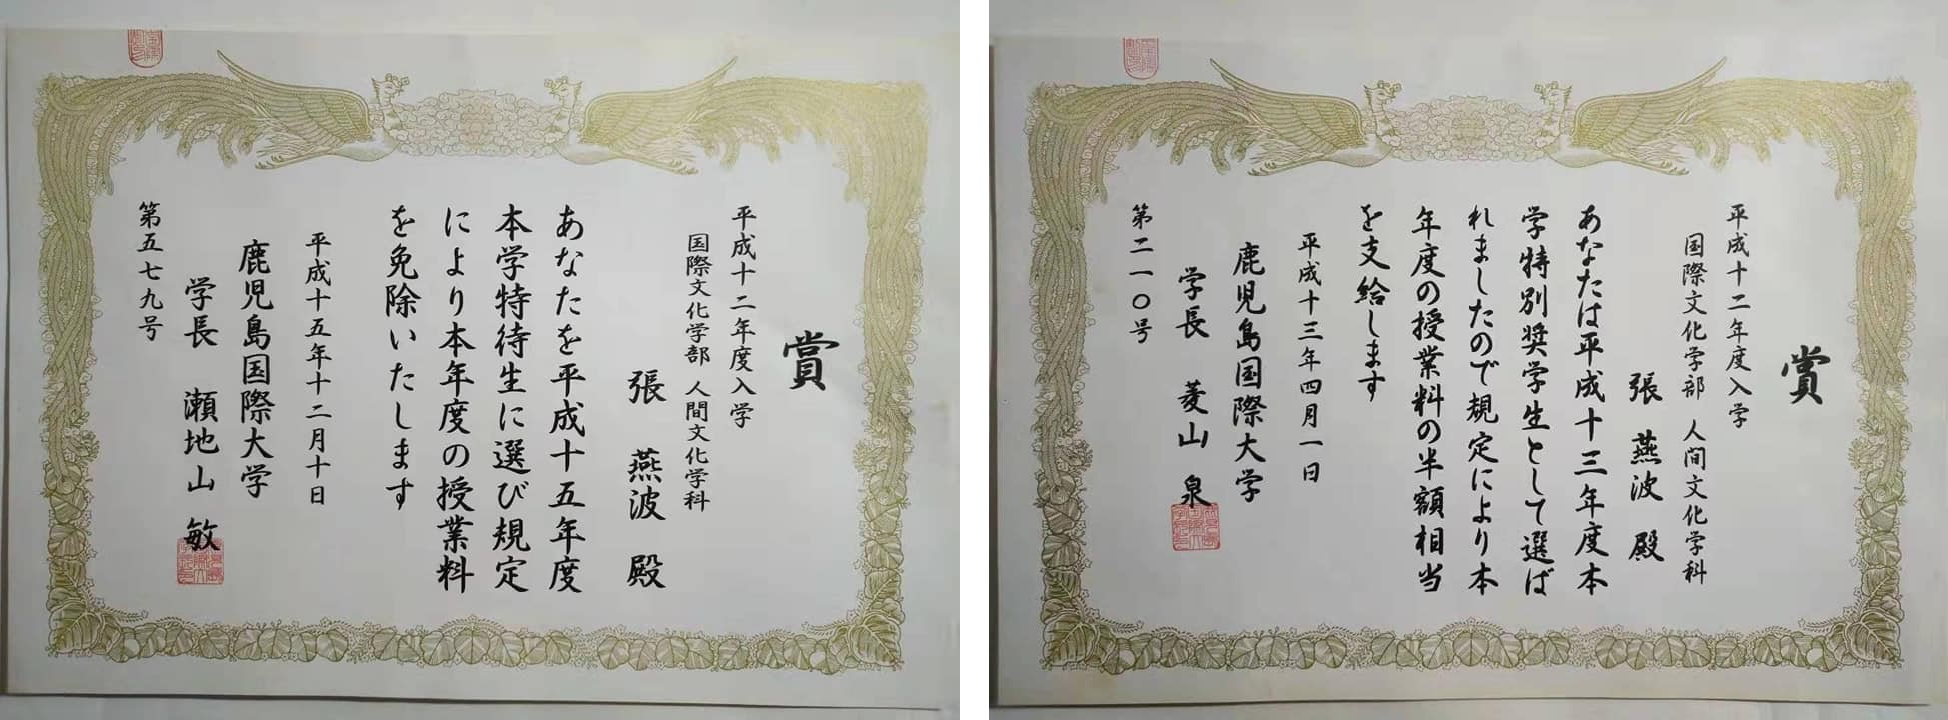 賞
平成十二年度入学
国際文化学部 人間文化学科
張 燕波 殿
あなたを平成十五年度
本学特待生に選び規定
により本年度の授業料
を免除いたします
平成十五年十二月十日
鹿児島国際大学
学長 瀬地山 敏
第五七九号
賞
平成十二年度入学
国際文化学部 人间文化学科
張 燕波 殿
あなたは平成十三年度本
学特別奨学生として選ば
れましたので規定により本
年度の授業料の半額相当
を支給します
平成十三年四月一日
鹿児島国際大学
学長 菱山 泉
第二一〇号